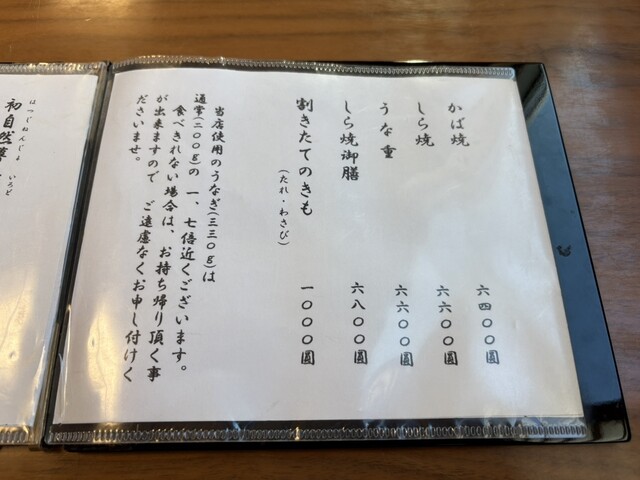 かば焼 六四〇〇圓
しら焼 六六〇〇圓
うな重 六六〇〇圓
しら焼御膳 六八〇〇圓
割きたてのきも 一〇〇〇圓
(たれ・わさび)
当店使用のうなぎ(三三〇g)は
通常(二〇〇g)の一、七倍近くございます。
食べきれない場合は、お持ち帰り頂く事
が出来ますので ご遠慮なくお申し付けく
ださいませ。
はつじねんじょ いろど
初自然薯